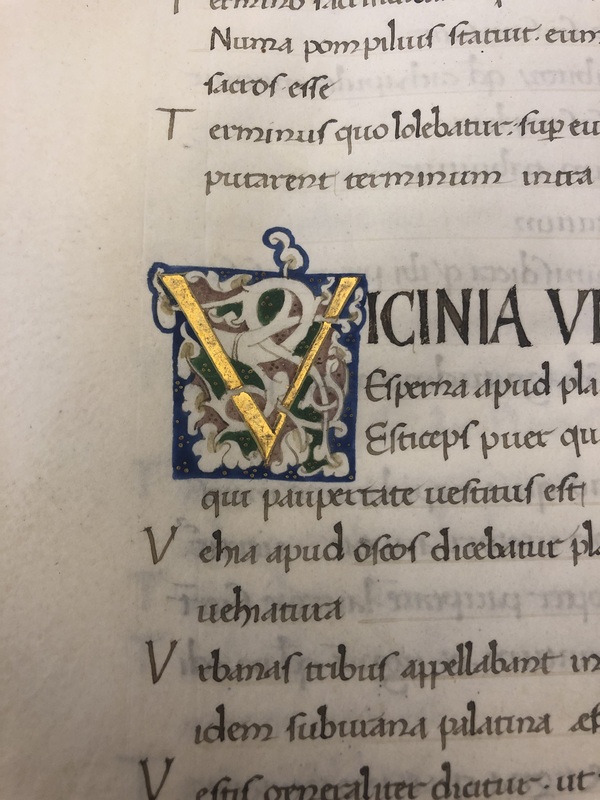 Numa pompilius statuit. eum
sacros esse
Terminus quo lolebatur: sup eu
putarent terminum intra
VICINIA VI
Esperna apud pla
Esticeps puer qu
qui paupertate uestitus est
Vehia apud oscos dicebatur pla
uehiatura
Vrbanas tribus appellabant in
idem suburana palatina
Vestis generaliter dicitur. ut